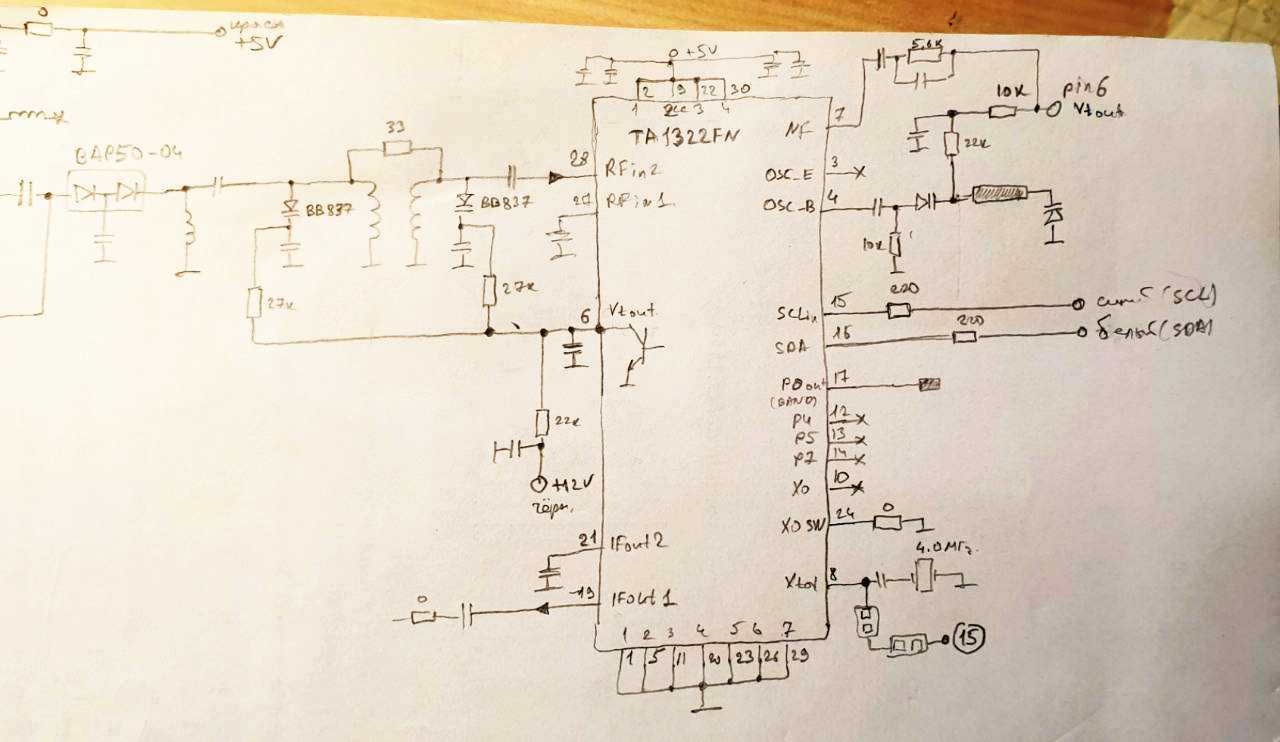 0
+5V
BAP50-04
33
BB837
BB837
27к
27к
0 +5V
2 9 22 30
1 2 3 4
Vcc
TA1322FN
28
RFin2
RFin1
6
Vtout
22к
+12V
чёрн.
21
IFout2
19
IFout1
0
1 2 3 4 5 6 7
1 5 11 20 23 26 29
NF
7
5,6к
10к
pin6
Vtout
22к
OSC_E
3
OSC_B
4
10к
SCLin
15
220
синий (SCL)
SDA
16
220
белый (SDA)
POout
17
(BAND)
P4
12
P5
13
P7
14
XO
10
XO SW
24
0
Xtal
8
4.0МГц.
15